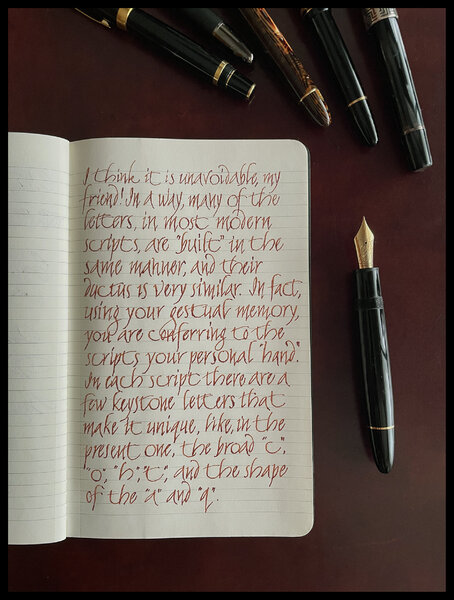 I think it is unavoidable, my
friend! In a way, many of the
letters, in most modern
scripts, are "built" in the
same manner, and their
ductus is very similar. In fact,
using your gestual memory,
you are conferring to the
scripts your personal "hand".
In each script there are a
few keystone letters that
make it unique, like, in the
present one, the broad "c",
"o", "h", "t", and the shape
of the "a" and "q".